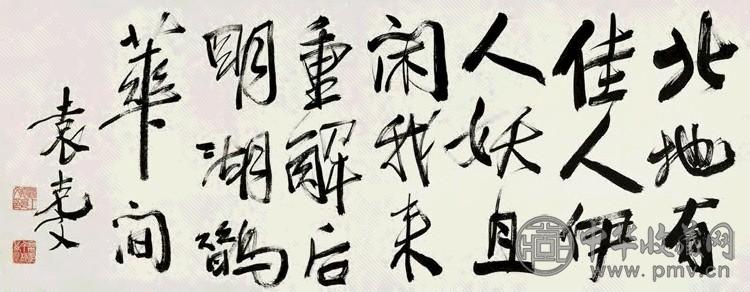 北地有
佳人伊
人妖且
闲我来
重解后
明湖鵲
華间
袁克文
中华收藏网
www.pmv.cn